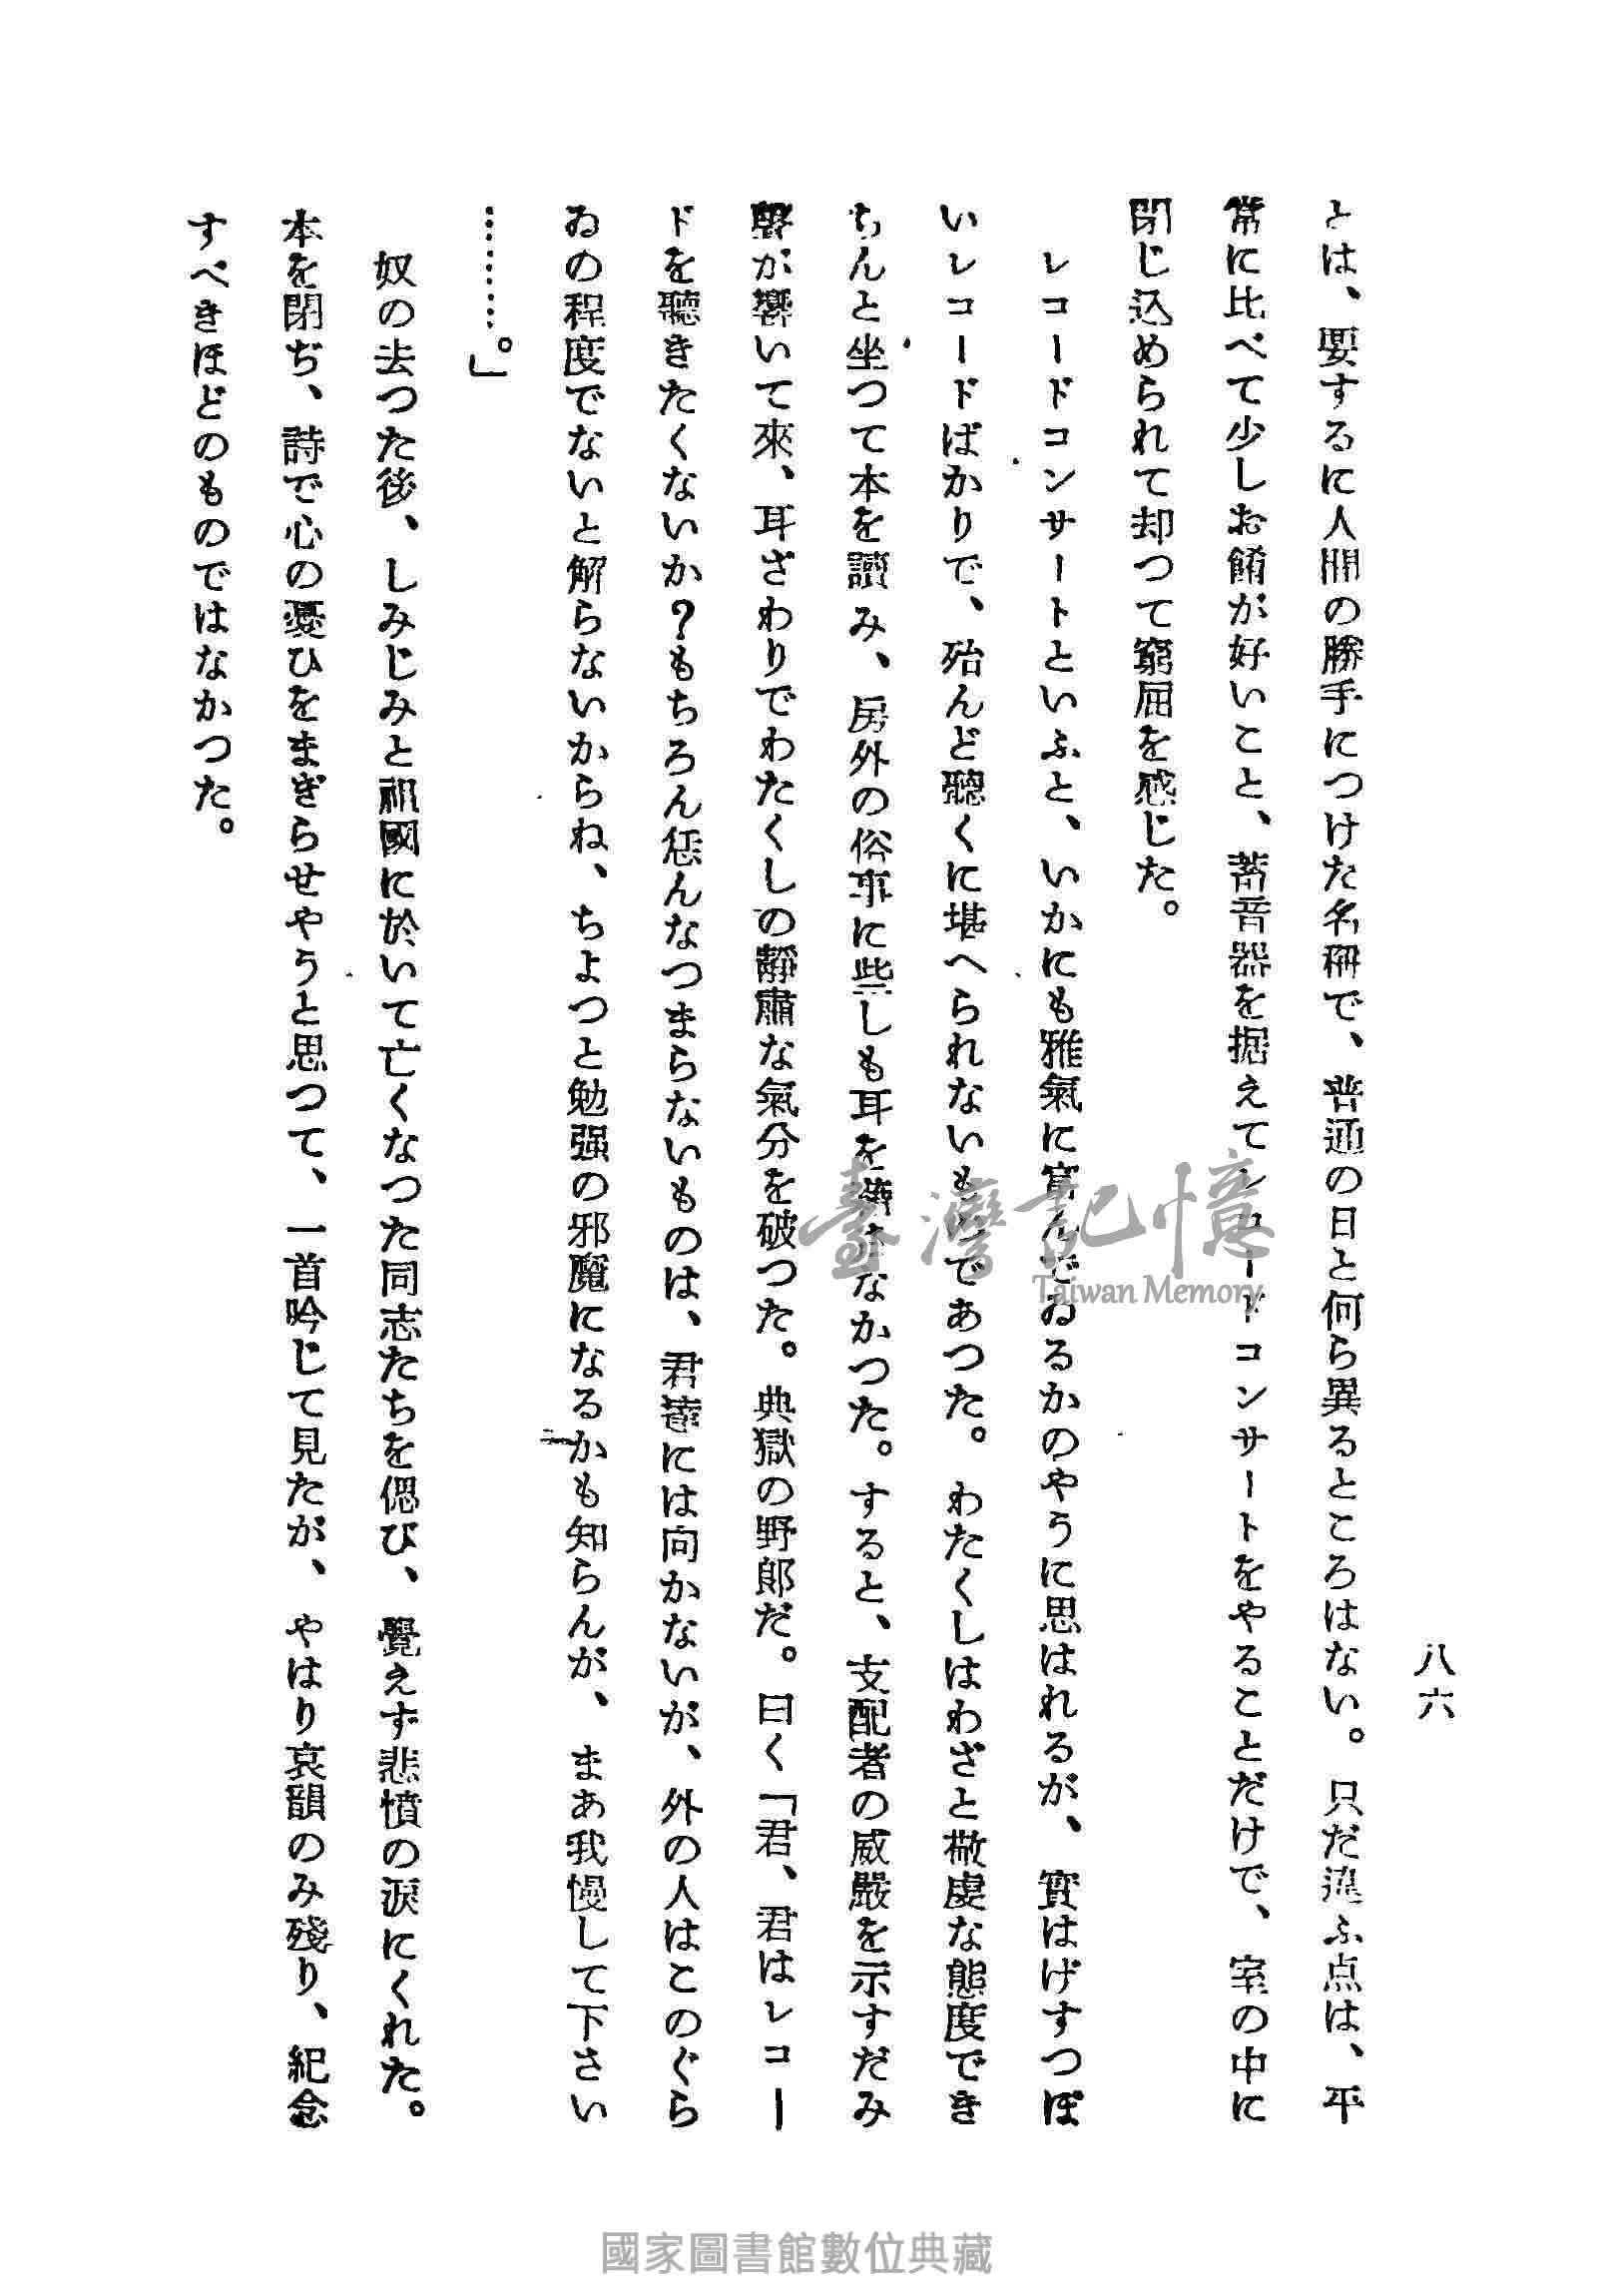 八六
とは、要するに人間の勝手につけた名稱で、普通の日と何ら異るところはない。只だ違ふ点は、平
常に比べて少しお餚が好いこと、蓄音器を据えてレコードコンサートをやることだけで、室の中に
閉じ込められて却つて窮屈を感じた。
レコードコンサートといふと、いかにも雅氣に富んでゐるかのやうに思はれるが、實はげすつぽ
いレコードばかりで、殆んど聽くに堪へられないものであつた。わたくしはわざと敬虔な態度でき
ちんと坐つて本を讀み、房外の俗事に些しも耳を なかつた。すると、支配者の威嚴を示すだみ
聲が響いて來、耳ざわりでわたくしの靜肅な氣分を破つた。典獄の野郎だ。曰く「君、君はレコー
ドを聽きたくないか？もちろん恁んなつまらないものは、君達には向かないが、外の人はこのぐら
ゐの程度でないと解らないからね、ちよつと勉强の邪魔になるかも知らんが、まあ我慢して下さい
………。」
奴の去つた後、しみじみと祖國に於いて亡くなつた同志たちを偲び、覺えず悲憤の淚にくれた。
本を閉ぢ、詩で心の憂ひをまぎらせやうと思つて、一首吟じて見たが、やはり哀韻のみ殘り、紀念
すべきほどのものではなかつた。
臺灣記憶
Taiwan Memory
國家圖書館數位典藏